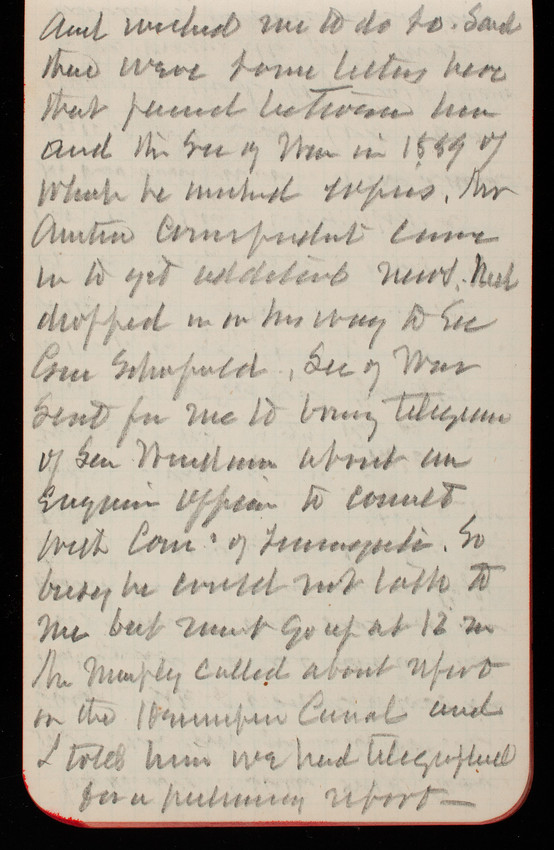 and wished me to do so. Said
there were some letters here
that passed between him
and the Sec of War in 1889 of
which he wished copies. Mr
Austin correspondent came
in to get additional news. Neil
dropped in on his way to See
Gen Schofield, Sec of War
Sent for me to bring telegram
of Sen Windham about an
Engineer officer to consult
with Com. of Minneapolis. So
busy he could not talk to
me but must go up at 12 m
Mr Murphy called about report
on the Hennepin Canal and
I told him we had telegraphed
for a preliminary report —